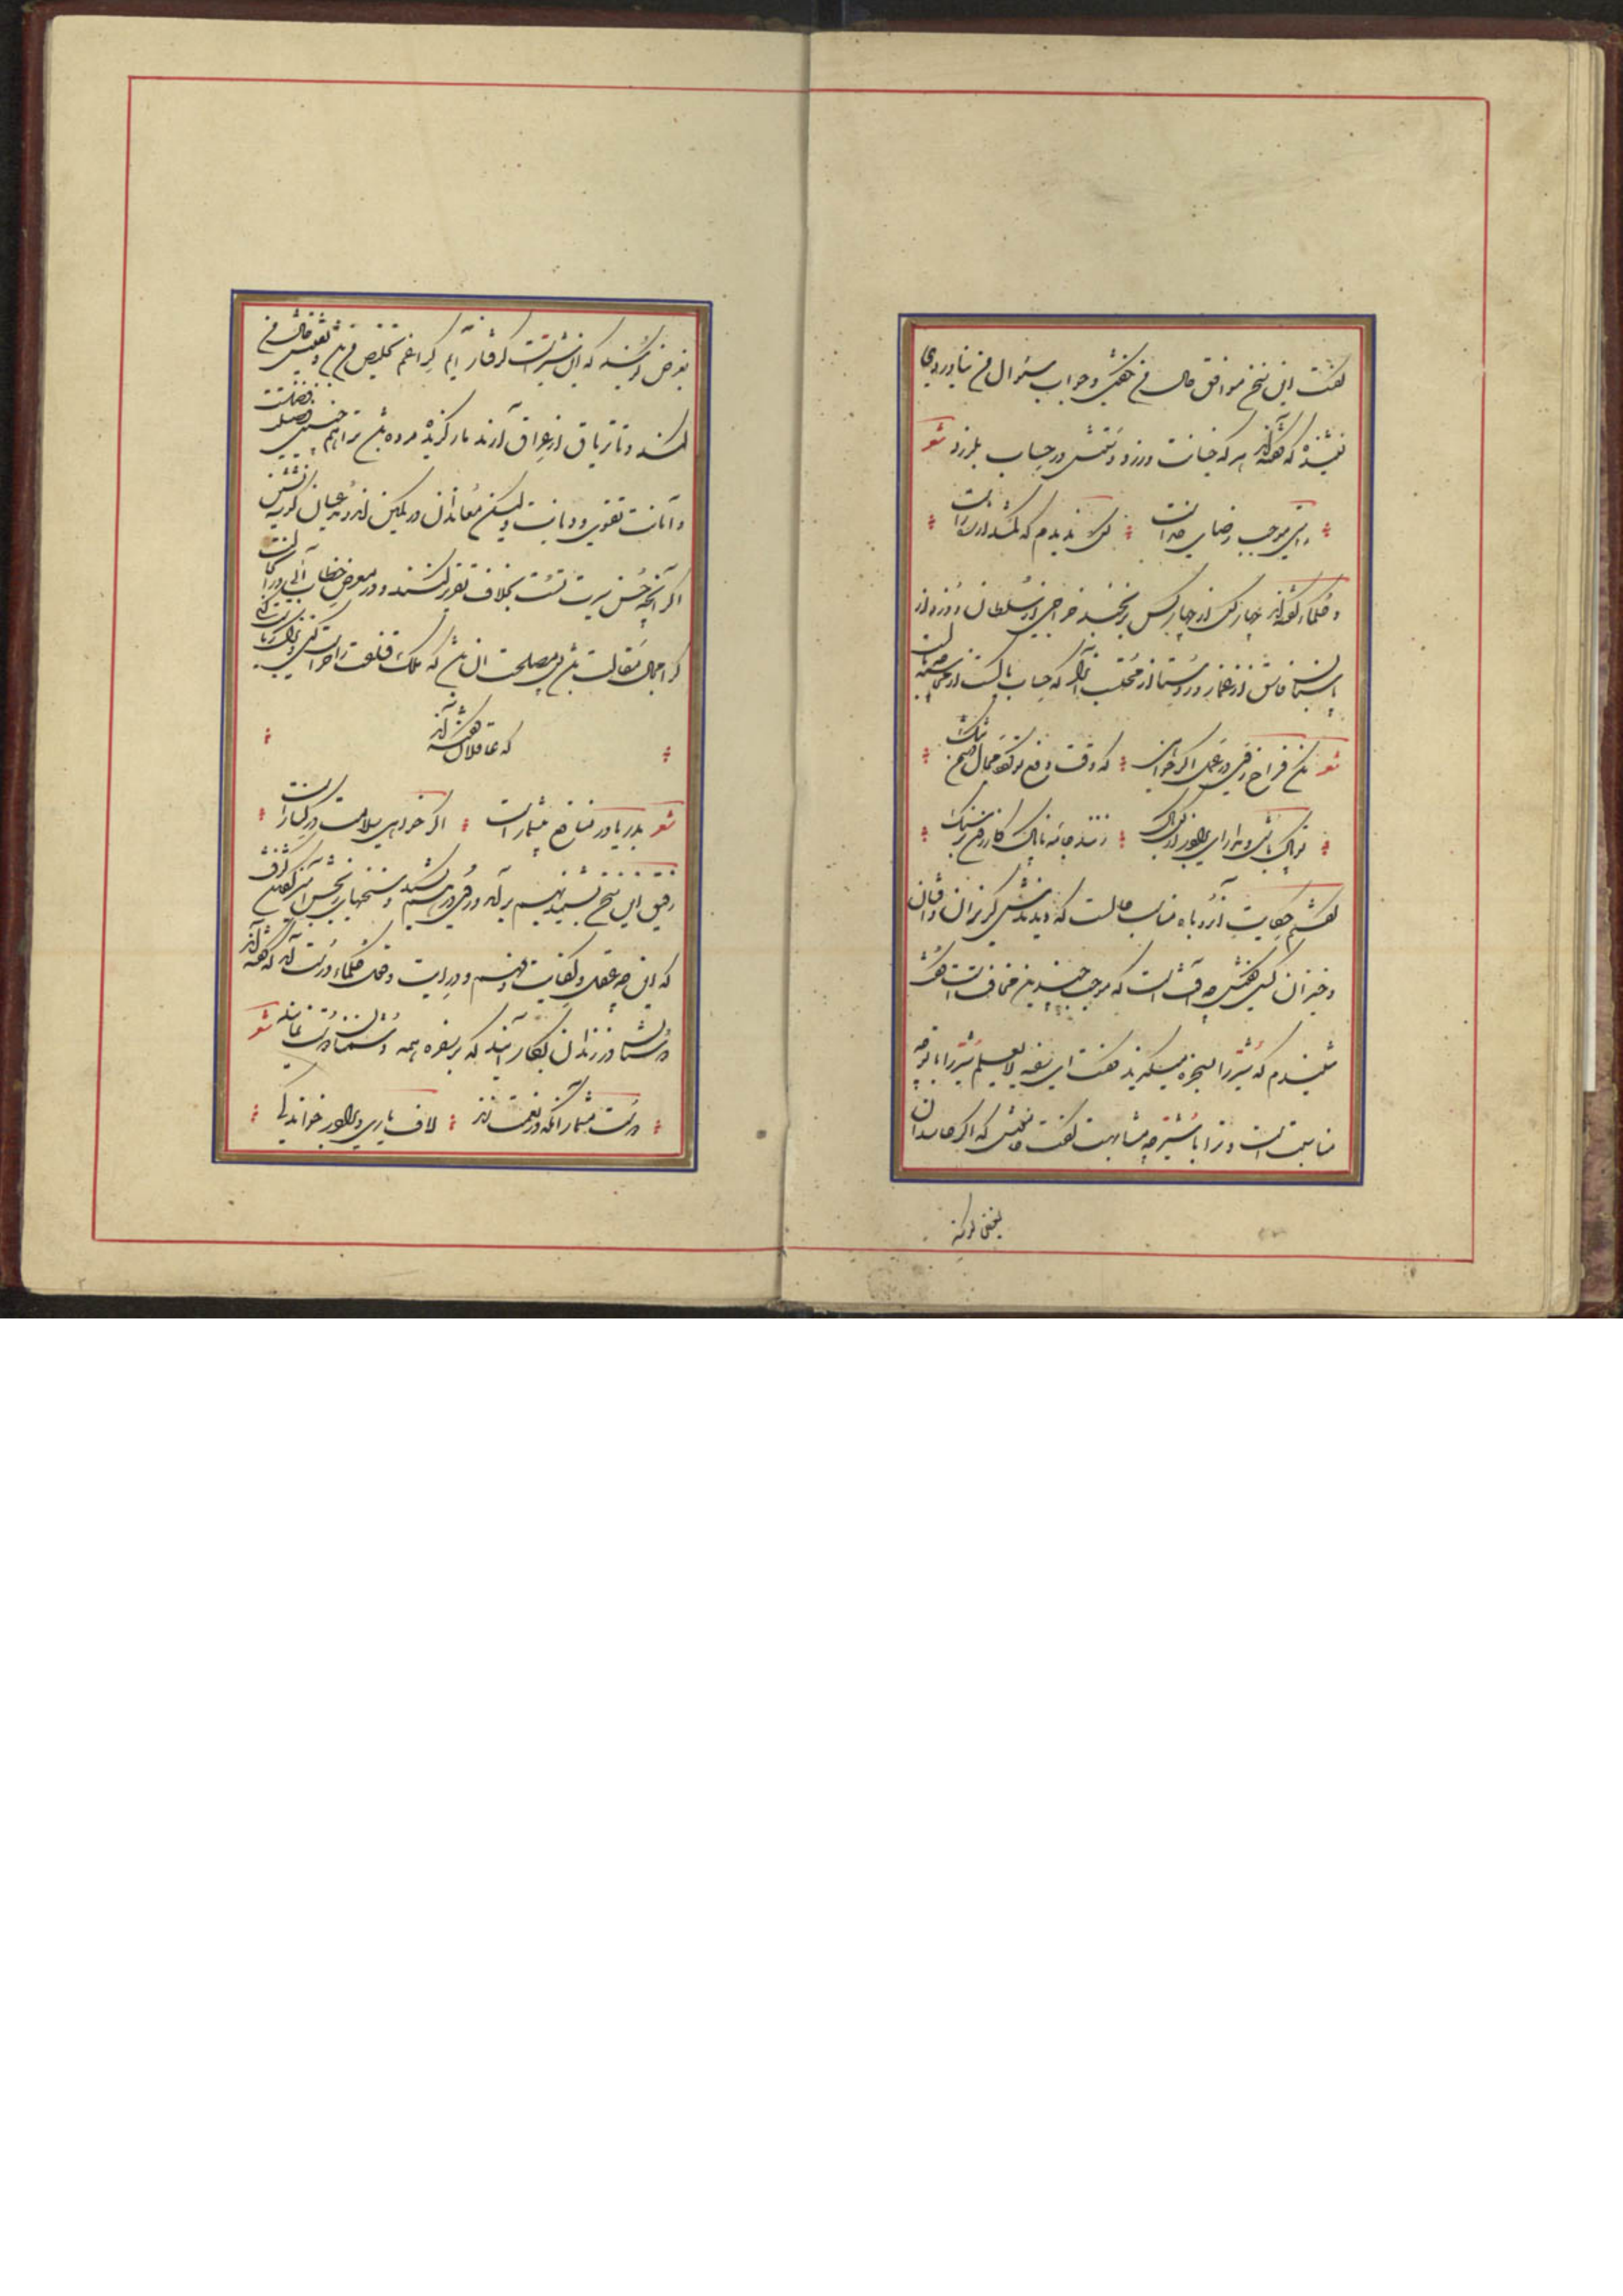 گفت این سخن موافق حال من نگفتی و جواب سؤال من نیاوردی
نشنیده که گفته‌اند هر که خیانت ورزد دستش در حساب بلرزد شعر
راستی موجب رضای خداست کس ندیدم که گم شد از ره راست
و حکما گفته‌اند چهار کس از چهار کس برنجند خراجی از سلطان و دزد از
پاسبان و فاسق از غماز و روسپی از محتسب آنرا که حساب پاکست از محاسبه چه باکست
شعر مکن فراخ روی در عمل اگر خواهی که وقت رفع تو باشد مجال دشمن تنگ
تو پاک باش و مدار ای برادر از کس باک زنند جامه ناپاک گازران بر سنگ
گفتم حکایت آن روباه مناسب حال تست که دیدندش گریزان و افتان
و خیزان کسی گفتش چه آفتست که موجب چندین مخافتست گفت
شنیدم که شتر را بسخره میگیرند گفت ای سفیه لایعلم شتر را با تو چه
مناسبتست و ترا با شتر چه مشابهت گفت خاموش که اگر حاسدان
بغرض گویند که این شترست گرفتار آیم کرا غم تخلیص من باشد و تفتیش حال من
کند و تا تریاق از عراق آرند مار گزیده مرده باشد ترا همچنین فضیلتست
و امانت تقوی و دیانت ولیکن معاندان در کمین‌اند و مدعیان گوشه نشین
اگر آنچه حسن سیرت تست بخلاف تقریر کنند و در معرض خطاب آئی در آن حالت
کرا مجال مقالت باشد پس مصلحت آن باشد که ملک قناعت را حراست کنی و ترک ریاست
که عاقلان گفته‌اند
شعر بدریا در منافع بیشمارست اگر خواهی سلامت در کنارست
رفیق این سخن بشنید بهم برآمد و روی در هم کشید و سخنهای رنجش آمیز گفتن گرفت
که این چه عقل و کفایت و فهم و درایت و قول حکما درست آمد که گفته‌اند
دوستان در زندان بکار آیند که بر سفره همه دشمنان دوست نمایند شعر
دوست مشمار آنکه در نعمت زند لاف یاری و برادر خواندگی